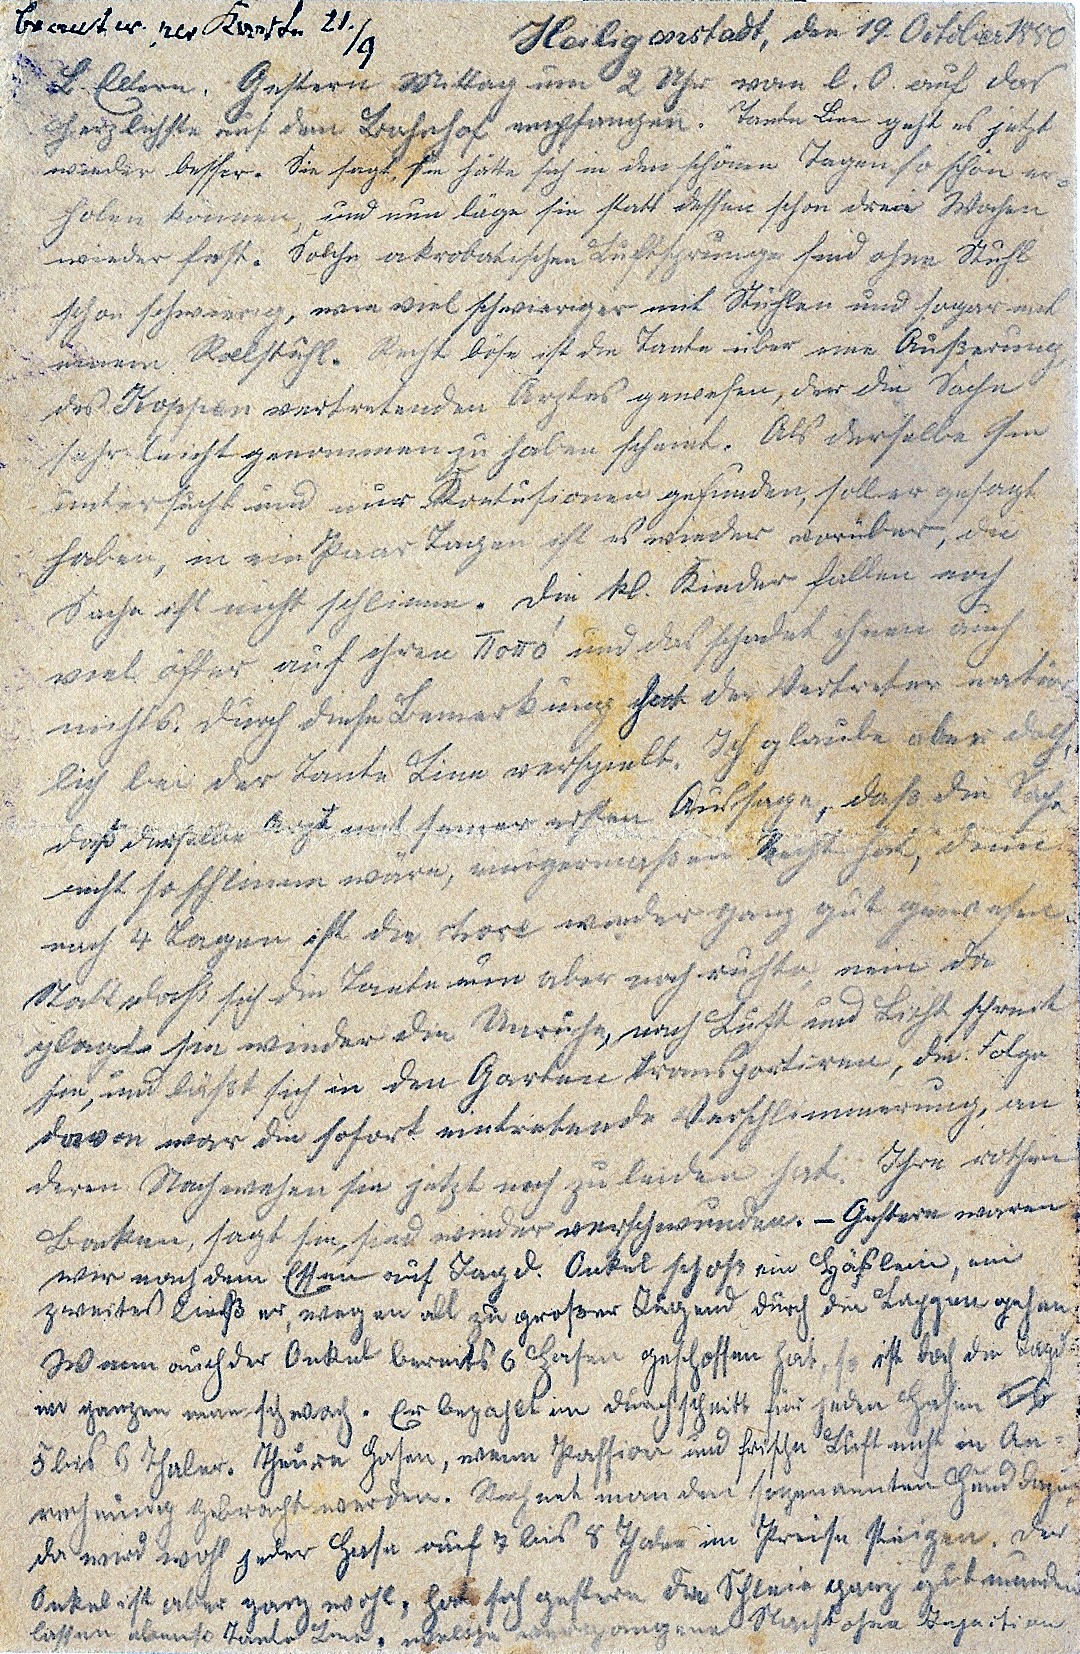 beantw. per Karte 21./9
Heiligenstadt, den 19. October 1880
L. Eltern. Gestern Mittag um 2 Uhr vom l. O. auf das
herzlichste auf dem Bahnhof empfangen. Tante Line geht es jetzt
wieder besser. Sie sagt, sie hätte sich in den schönen Tagen so schön er-
holen können, und nun läge sie statt dessen schon drei Wochen
wieder fest. Solche akrobatischen Luftsprünge sind ohne Stuhl
schon schwierig, wie viel schwieriger mit Stühlen und sogar mit
einem Rollstuhl. Recht böse ist die Tante über eine Äußerung
des vertretenden Arztes gewesen, der die Sache
sehr leicht genommen zu haben scheint. Als derselbe sie
untersucht und nur Kontusionen gefunden, soll er gesagt
haben, in ein Paar Tagen ist es wieder vorüber, die
Sache ist nicht schlimm. Die kl. Kinder fallen noch
viel öfter auf ihren Ποπό und das schadet ihnen auch
nichts. Durch diese Bemerkung hat der Vertreter natür-
lich bei der Tante Line verspielt. Ich glaube aber doch,
daß derselbe Arzt mit seiner ersten Aussage, daß die Sache
nicht so schlimm wäre, einigermaßen Recht hat, denn
nach 4 Tagen ist die wieder ganz gut gewesen.
Statt daß sich die Tante nun aber noch ruhte, nein da
plagt sie wieder die Unruhe, nach Luft und Licht schreit
sie, und läßt sich in den Garten transportiren, die Folge
davon war die sofort eintretende Verschlimmerung, an
deren Nachwehen sie jetzt noch zu leiden hat. Ihre rothen
Backen, sagt sie, sind wieder verschwunden. – Gestern waren
wir nach dem Essen auf Jagd. Onkel schoß ein Häslein, ein
zweites ließ er, wegen all zu großer Jugend durch die Lappen gehen.
Wenn auch der Onkel bereits 6 Hasen geschossen hat, so ist doch die Jagd
im ganzen nur schwach. Er bezahlt im Durchschnitt für jeden Hasen
5 bis 6 Thaler. Theure Hasen, wenn Passion und frische Luft nicht in An-
rechnung gebracht werden. Rechnet man den sogenannten Hund dazu,
da wird wohl jeder Hase auf 7 bis 8 Thaler im Preise steigen. Der
Onkel ist aber ganz wohl, hat sich gestern den Schleie ganz gut munden
lassen ebenso Tante Line, welche vergangene Nacht ohne Injection